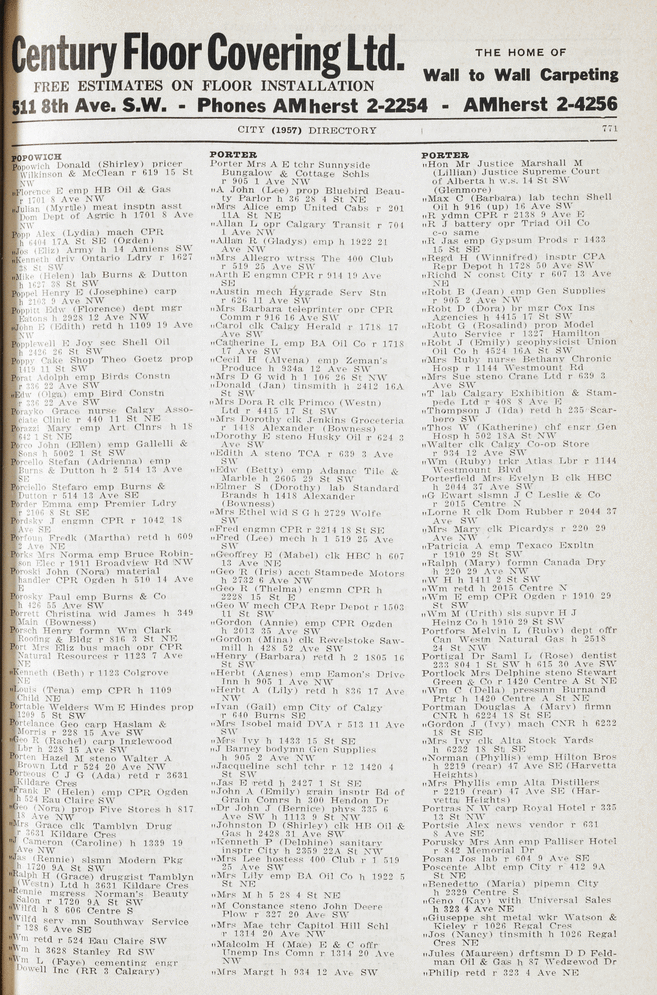 Century Floor Covering Ltd.
FREE ESTIMATES ON FLOOR INSTALLATION
THE HOME OF
Wall to Wall Carpeting
511 8th Ave. S.W. - Phones AMherst 2-2254 - AMherst 2-4256
CITY (1957) DIRECTORY 771
POPOWICH
Popowich Donald (Shirley) pricer
Wilkinson & McClean r 619 15 St
NW
„Florence E emp HB Oil & Gas
r 1701 8 Ave NW
„Julian (Myrtle) meat insptn asst
Dom Dept of Agric h 1701 8 Ave
NW
Popp Alex (Lydia) mach CPR
h 6404 17A St SE (Ogden)
„Jos (Eliz) Army h 14 Amiens SW
„Kenneth driv Ontario Ldry r 1627
38 St SW
„Mike (Helen) lab Burns & Dutton
h 1627 38 St SW
Poppel Henry E (Josephine) carp
h 2103 9 Ave NW
Poppitt Edw (Florence) dept mgr
Eatons h 2928 12 Ave NW
„John E (Edith) retd h 1109 19 Ave
NW
Popplewell E Joy sec Shell Oil
h 2426 26 St SW
Poppy Cake Shop Theo Goetz prop
1419 11 St SW
Porat Adolph emp Birds Constn
r 336 22 Ave SW
„Edw (Olga) emp Bird Constn
r 336 22 Ave SW
Porayko Grace nurse Calgy Asso-
ciate Clinic r 440 11 St NE
Porazzi Mary emp Art Clnrs h 18
642 1 St NE
Porco John (Ellen) emp Gallelli &
Sons h 5002 1 St SW
Porcello Stefan (Adrienna) emp
Burns & Dutton h 2 514 13 Ave
SE
Porciello Stefaro emp Burns &
Dutton r 514 13 Ave SE
Porder Emma emp Premier Ldry
r 2106 8 St SE
Pordsky J engmn CPR r 1042 18
Ave SE
Porfonn Fredk (Martha) retd h 609
2 Ave NE
Porks Mrs Norma emp Bruce Robin-
son Elec r 1911 Broadview Rd NW
Poroski John (Nora) material
handler CPR Ogden h 510 14 Ave
E
Porosky Paul emp Burns & Co
h 426 55 Ave SW
Porrett Christina wid James h 349
Main (Bowness)
Porsch Henry formn Wm Clark
Roofing & Bldg r 816 3 St NE
Port Mrs Eliz bus mach opr CPR
Natural Resources r 1123 7 Ave
NE
„Kenneth (Beth) r 1123 Colgrove
NE
„Louis (Tena) emp CPR h 1109
Child NE
Portable Welders Wm E Hindes prop
1209 5 St SW
Portelance Geo carp Haslam &
Morris r 228 15 Ave SW
„Geo R (Rachel) carp Inglewood
Lbr h 228 15 Ave SW
Porten Hazel M steno Walter A
Brown Ltd r 524 20 Ave NW
Porteous C J G (Ada) retd r 3631
Kildare Cres
„Frank F (Helen) emp CPR Ogden
h 524 Eau Claire SW
„Geo (Nora) prop Five Stores h 817
18 Ave NW
„Mrs Grace clk Tamblyn Drug
r 3631 Kildare Cres
„J Cameron (Caroline) h 1339 19
Ave NW
„Jas (Rennie) slsmn Modern Pkg
h 1720 9A St SW
„Ralph H (Grace) druggist Tamblyn
(Westn) Ltd h 3631 Kildare Cres
„Rennie mgress Norman's Beauty
Salon r 1720 9A St SW
„Wilfd h 8 606 Centre S
„Wilfd serv mn Southway Service
r 128 6 Ave SE
„Wm retd r 524 Eau Claire SW
„Wm h 3628 Stanley Rd SW
„Wm L (Faye) cementing engr
Dowell Inc (RR 3 Calgary)
PORTER
Porter Mrs A E tchr Sunnyside
Bungalow & Cottage Schls
r 905 1 Ave NW
„A John (Lee) prop Bluebird Beau-
ty Parlor h 36 28 4 St NE
„Mrs Alice emp United Cabs r 201
11A St NE
„Allan L opr Calgary Transit r 704
1 Ave NW
„Allan R (Gladys) emp h 1922 21
Ave NW
„Mrs Allegro wtrss The 400 Club
r 519 25 Ave SW
„Arth E engmn CPR r 914 19 Ave
SE
„Austin mech Hygrade Serv Stn
r 626 11 Ave SW
„Mrs Barbara teleprinter opr CPR
Comm r 916 16 Ave SW
„Carol clk Calgy Herald r 1718 17
Ave SW
„Catherine L emp BA Oil Co r 1718
17 Ave SW
„Cecil H (Alvena) emp Zeman's
Produce h 934a 12 Ave SW
„Mrs D G wid h 1 106 26 St NW
„Donald (Jan) tinsmith h 2412 16A
St SW
„Mrs Dora R clk Primco (Westn)
Ltd r 4415 17 St SW
„Mrs Dorothy clk Jenkins Groceteria
r 1418 Alexander (Bowness)
„Dorothy E steno Husky Oil r 624 3
Ave SW
„Edith A steno TCA r 639 3 Ave
SW
„Edw (Betty) emp Adanac Tile &
Marble h 2605 29 St SW
„Elmer S (Dorothy) lab Standard
Brands h 1418 Alexander
(Bowness)
„Mrs Ethel wid S G h 2729 Wolfe
SW
„Fred engmn CPR r 2214 18 St SE
„Fred (Lee) mech h 1 519 25 Ave
SW
„Geoffrey E (Mabel) clk HBC h 607
13 Ave NE
„Geo R (Iris) acct Stampede Motors
h 2732 6 Ave NW
„Geo R (Thelma) engmn CPR h
2228 15 St E
„Geo W mech CPA Repr Depot r 1503
11 St SW
„Gordon (Annie) emp CPR Ogden
h 2013 35 Ave SW
„Gordon (Mina) clk Revelstoke Saw-
mill h 428 52 Ave SW
„Henry (Barbara) retd h 2 1805 16
St SW
„Herbt (Agnes) emp Eamon's Drive
Inn h 905 1 Ave NW
„Herbt A (Lily) retd h 836 17 Ave
NW
„Ivan (Gail) emp City of Calgy
r 640 Burns SE
„Mrs Isobel maid DVA r 513 11 Ave
SW
„Mrs Ivy h 1433 15 St SE
„J Barney bodymn Gen Supplies
h 905 2 Ave NW
„Jacqueline schl tchr r 12 1420 4
St SW
„Jas B retd h 2427 1 St SE
„John A (Emily) grain insptr Bd of
Grain Comrs h 300 Hendon Dr
„Dr John J (Bernice) phys 335 6
Ave SW h 1113 9 St NW
„Johnston D (Shirley) clk HB Oil &
Gas h 2428 31 Ave SW
„Kenneth P (Delphine) sanitary
inspr City h 2359 22A St NW
„Mrs Lee hostess 400 Club r 1 519
25 Ave SW
„Mrs Lily emp BA Oil Co h 1922 5
St NE
„Mrs M h 5 28 4 St NE
„M Constance steno John Deere
Plow r 327 20 Ave SW
„Mrs Mae tchr Capitol Hill Schl
r 1314 20 Ave NW
„Malcolm H (Mae) E & C offr
Unemp Ins Comn r 1314 20 Ave
NW
„Mrs Margt h 934 12 Ave SW
PORTER
„Hon Mr Justice Marshall M
(Lillian) Justice Supreme Court
of Alberta h w.s. 14 St SW
(Glenmore)
„Max C (Barbara) lab techn Shell
Oil h 916 (up) 16 Ave SW
„R ydmn CPR r 2138 9 Ave E
„R J battery opr Triad Oil Co
c-o same
„R Jas emp Gypsum Prods r 1433
15 St SE
„Regd H (Winnifred) insptr CPA
Repr Depot h 1728 50 Ave SW
„Richd N const City r 607 13 Ave
NE
„Robt B (Jean) emp Gen Supplies
r 905 2 Ave NW
„Robt D (Dora) br mgr Cox Ins
Agencies h 4415 17 St SW
„Robt G (Rosalind) prop Model
Auto Service r 1327 Hamilton
„Robt J (Emily) geophysicist Union
Oil Co h 4524 16A St SW
„Mrs Ruby nurse Bethany Chronic
Hosp r 1144 Westmount Rd
„Mrs Sue steno Crane Ltd r 639 3
Ave SW
„T lab Calgary Exhibition & Stam-
pede Ltd r 408 8 Ave E
„Thompson J (Ida) retd h 235 Scar-
boro SW
„Thos W (Katherine) chf engr Gen
Hosp h 502 18A St NW
„Walter clk Calgy Co-op Store
r 934 12 Ave SW
„Wm (Ruby) trkr Atlas Lbr r 1144
Westmount Blvd
Porterfield Mrs Evelyn B clk HBC
h 2044 37 Ave SW
„G Ewart slsmn J C Leslie & Co
r 2015 Centre N
„Lorne R clk Dom Rubber r 2044 37
Ave SW
„Mrs Mary clk Picardys r 220 29
Ave NW
„Patricia A emp Texaco Expltn
r 1910 29 St SW
„Ralph (Mary) formn Canada Dry
h 220 29 Ave NW
„W H h 1411 2 St NW
„Wm retd h 2015 Centre N
„Wm E emp CPR Ogden r 1910 29
St SW
„Wm M (Urith) sls supvr H J
Heinz Co h 1910 29 St SW
Portfors Melvin L (Ruby) dept offr
Can Westn Natural Gas h 2518
24 St NW
Portigal Dr Saml L (Rose) dentist
233 804 1 St SW h 615 30 Ave SW
Portlock Mrs Delphine steno Stewart
Green & Co r 1420 Centre A St NE
„Wm C (Della) pressmn Burnand
Prtg h 1420 Centre A St NE
Portman Douglas A (Mary) firmn
CNR h 6224 18 St SE
„Gordon J (Ivy) mach CNR h 6232
18 St SE
„Mrs Ivy clk Alta Stock Yards
h 6232 18 St SE
„Norman (Phyllis) emp Hilton Bros
h 2219 (rear) 47 Ave SE (Harvetta
Heights)
„Mrs Phyllis emp Alta Distillers
r 2219 (rear) 47 Ave SE (Har-
vetta Heights)
Portras N W carp Royal Hotel r 335
13 St NW
Portsie Alex news vendor r 631
8 Ave SE
Porusky Mrs Ann emp Palliser Hotel
r 842 Memorial Dr
Posan Jos lab r 604 9 Ave SE
Poscente Albt emp City r 412 9A
St NE
„Benedetto (Maria) pipemn City
h 2329 Centre S
„Geno (Kay) with Universal Sales
h 323 4 Ave NE
„Giuseppe sht metal wkr Watson &
Kieley r 1026 Regal Cres
„Jos (Nancy) tinsmith h 1026 Regal
Cres NE
„Jules (Maureen) drftsmn D D Feld-
man Oil & Gas h 87 Wedgewod Dr
„Philip retd r 323 4 Ave NE